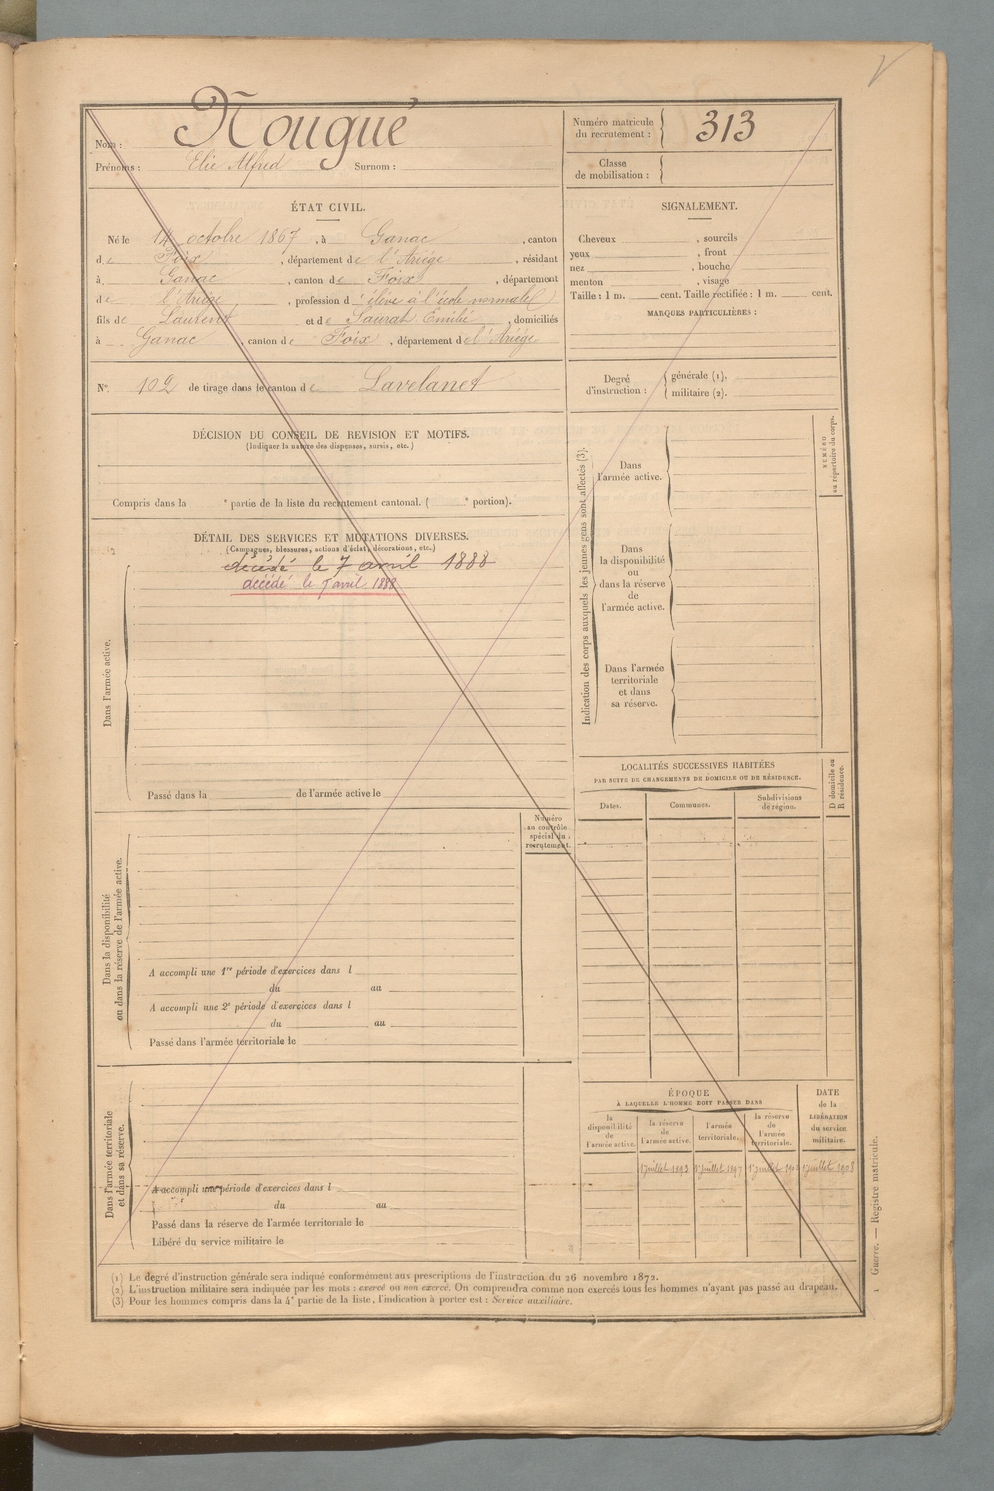 Nom : Nougué
Prénoms : Elie Alfred Surnom :
Numéro matricule du recrutement : 313
Classe de mobilisation :
ÉTAT CIVIL.
Né le 14 octobre 1867, à Ganac, canton
de Foix, département de l'Ariège, résidant
à Ganac, canton de Foix, département
de l'Ariège, profession d' élève à l'école normale
fils de Laurent et de Saurat Emilié, domiciliés
à Ganac, canton de Foix, département de l'Ariège
N° 102 de tirage dans le canton de Lavelanet
SIGNALEMENT.
Cheveux , sourcils
yeux , front
nez , bouche
menton , visage
Taille : 1 m. cent. Taille rectifiée : 1 m. cent.
MARQUES PARTICULIÈRES :
Degré d'instruction : générale (1).
militaire (2).
DÉCISION DU CONSEIL DE REVISION ET MOTIFS.
(Indiquer la nature des dispenses, sursis, etc.)
Compris dans la e partie de la liste du recrutement cantonal. ( e portion).
DÉTAIL DES SERVICES ET MUTATIONS DIVERSES.
(Campagnes, blessures, actions d'éclat, décorations, etc.)
décédé le 7 avril 1888
décédé le 7 avril 1888
Dans l'armée active.
Passé dans la de l'armée active le
Numéro
au contrôle
spécial du
recrutement.
Dans la disponibilité
ou dans la réserve de l'armée active.
A accompli une 1re période d'exercices dans l
du au
A accompli une 2e période d'exercices dans l
du au
Passé dans l'armée territoriale le
Dans l'armée territoriale
et dans sa réserve.
A accompli une période d'exercices dans l
du au
Passé dans la réserve de l'armée territoriale le
Libéré du service militaire le
Indication des corps auxquels les jeunes gens sont affectés (3).
Dans
l'armée active.
Dans
la disponibilité
ou
dans la réserve
de
l'armée active.
Dans l'armée
territoriale
et dans
sa réserve.
NUMÉRO
au répertoire du corps.
LOCALITÉS SUCCESSIVES HABITÉES
PAR SUITE DE CHANGEMENTS DE DOMICILE OU DE RÉSIDENCE.
Dates. Communes. Subdivisions de région.
D domicile ou
R résidence.
ÉPOQUE
À LAQUELLE L'HOMME DOIT PASSER DANS
la disponibilité de l'armée active.
la réserve de l'armée active.
l'armée territoriale.
la réserve de l'armée territoriale.
DATE
de la
LIBÉRATION
du service
militaire.
1 juillet 1893 1er juillet 1897 1er juillet 190 1 juillet 1908
(1) Le degré d'instruction générale sera indiqué conformément aux prescriptions de l'instruction du 26 novembre 1872.
(2) L'instruction militaire sera indiquée par les mots : exercé ou non exercé. On comprendra comme non exercés tous les hommes n'ayant pas passé au drapeau.
(3) Pour les hommes compris dans la 4e partie de la liste, l'indication à porter est : Service auxiliaire.
Guerre. — Registre matricule.